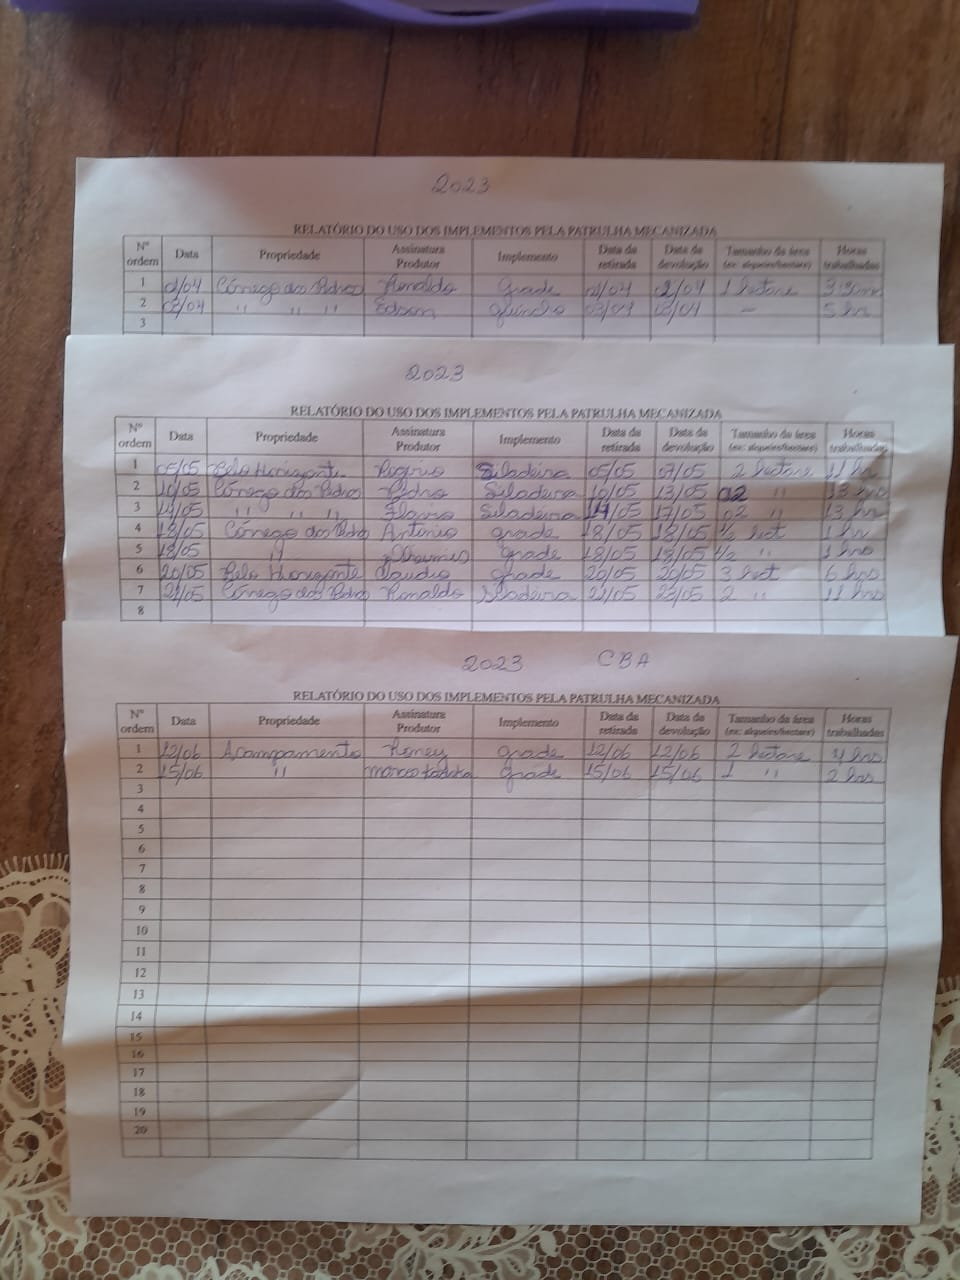 2023
RELATÓRIO DO USO DOS IMPLEMENTOS PELA PATRULHA MECANIZADA
Nº ordem Data Propriedade Assinatura Produtor Implemento Data da retirada Data da devolução Tamanho da área (ex: alqueire/hectare) Horas trabalhadas
1 02/04 Córrego dos Pedros Ronaldo Grade 02/04 02/04 1 hectare 3
2 03/04 " " " Edson guincho 03/04 03/04 — 5 hr
3
2023
RELATÓRIO DO USO DOS IMPLEMENTOS PELA PATRULHA MECANIZADA
Nº ordem Data Propriedade Assinatura Produtor Implemento Data da retirada Data da devolução Tamanho da área (ex: alqueire/hectare) Horas trabalhadas
1 05/05 Belo Horizonte Rogério Siladeira 05/05 07/05 2 hectare 11 hr
2 10/05 Córrego dos Pedros Pedro Siladeira 10/05 13/05 02 " 13 hrs
3 14/05 " " " Flavio Siladeira 14/05 17/05 02 " 13 hr
4 18/05 Córrego dos Pedros Antonio grade 18/05 18/05 1/2 hect 1 hr
5 18/05 " grade 18/05 18/05 1/2 " 1 hrs
6 20/05 Belo Horizonte Claudio grade 20/05 20/05 3 hect 6 hrs
7 21/05 Córrego dos Pedros Ronaldo Siladeira 21/05 23/05 2 " 11 hrs
8
2023 CBA
RELATÓRIO DO USO DOS IMPLEMENTOS PELA PATRULHA MECANIZADA
Nº ordem Data Propriedade Assinatura Produtor Implemento Data da retirada Data da devolução Tamanho da área (ex: alqueire/hectare) Horas trabalhadas
1 12/06 Acampamento grade 12/06 12/06 2 hectare 4 hrs
2 15/06 " grade 15/06 15/06 1 " 2 hrs
3
4
5
6
7
8
9
10
11
12
13
14
15
16
17
18
19
20